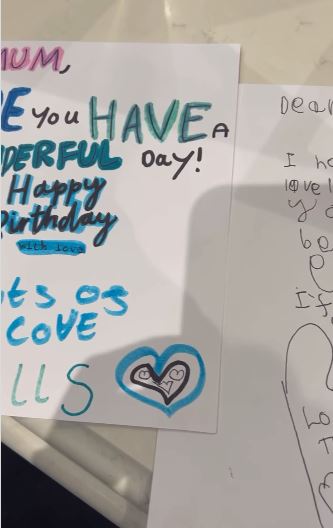 MUM,
E you HAVE A
DERFUL DAY!
Happy
Birthday
with love
ts os
COVE
LLS
Dear
I ha
lovel
y
be
If